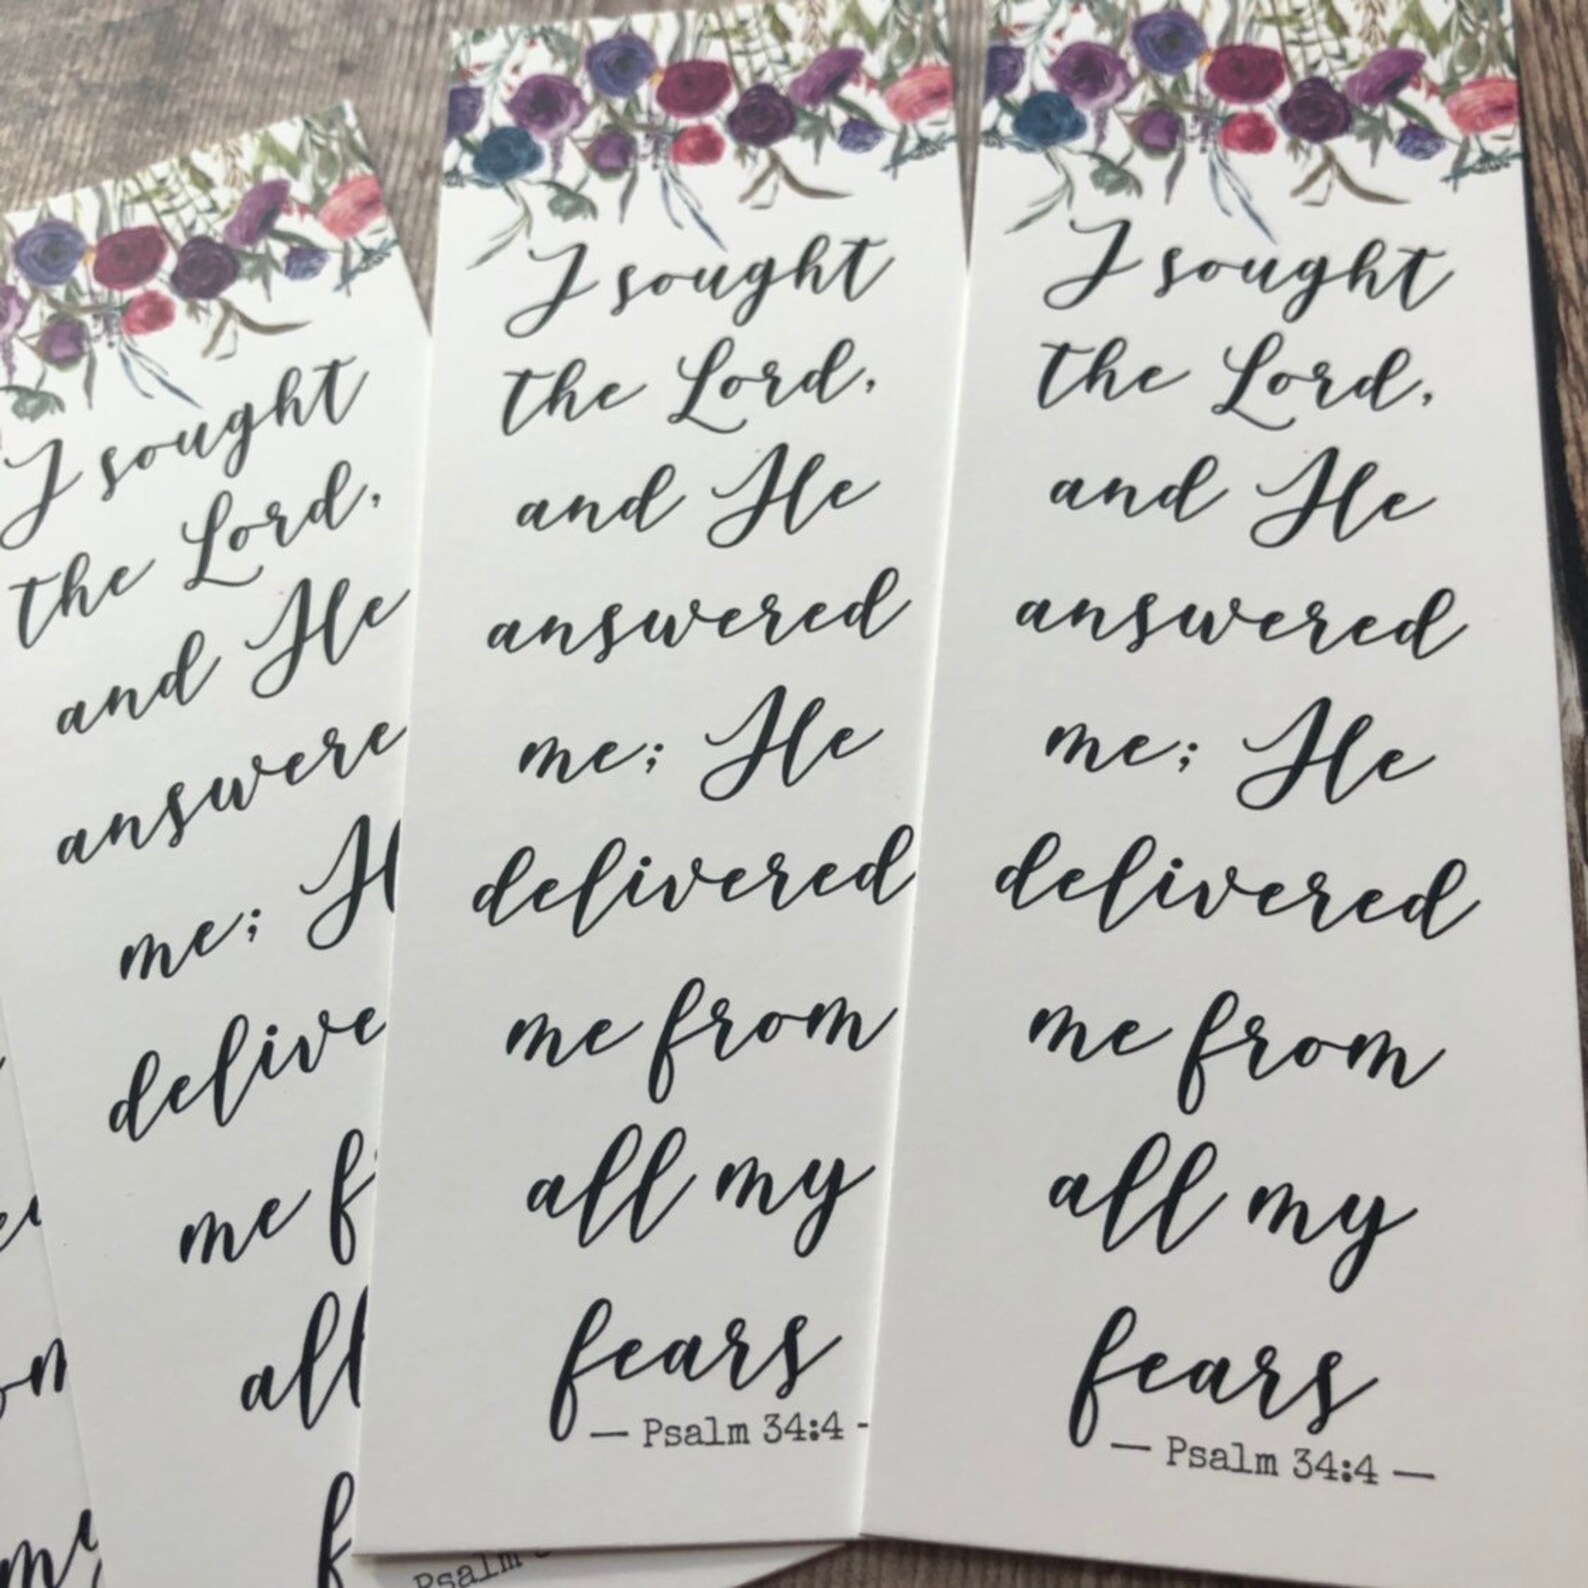 I sought
the Lord,
and He
answered
me; He
delivered
me from
all my
fears
— Psalm 34:4 —
I sought
the Lord,
and He
answered
me; He
delivered
me from
all my
fears
— Psalm 34:4 -
I sought
the Lord,
and He
answere
me; H
delive
me f
all
f
Psalm